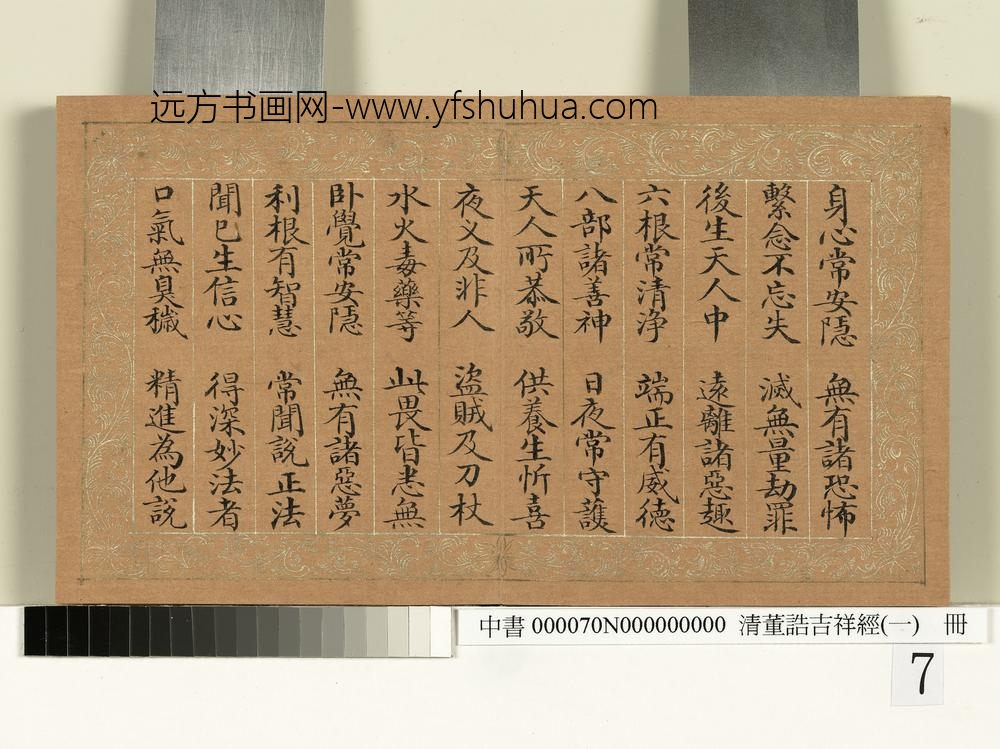 远方书画网-www.yfshuhua.com
身心常安隱 無有諸恐怖
繫念不忘失 滅無量劫罪
後生天人中 遠離諸惡趣
六根常清净 端正有威徳
八部諸善神 日夜常守護
天人所恭敬 供養生忻喜
夜叉及非人 盜賊及刀杖
水火毒藥等 此畏皆悉無
卧覺常安隱 無有諸惡夢
利根有智慧 常聞說正法
聞已生信心 得深妙法者
口氣無臭穢 精進為他說
中書 000070N000000000 清董誥吉祥經(一) 冊
7